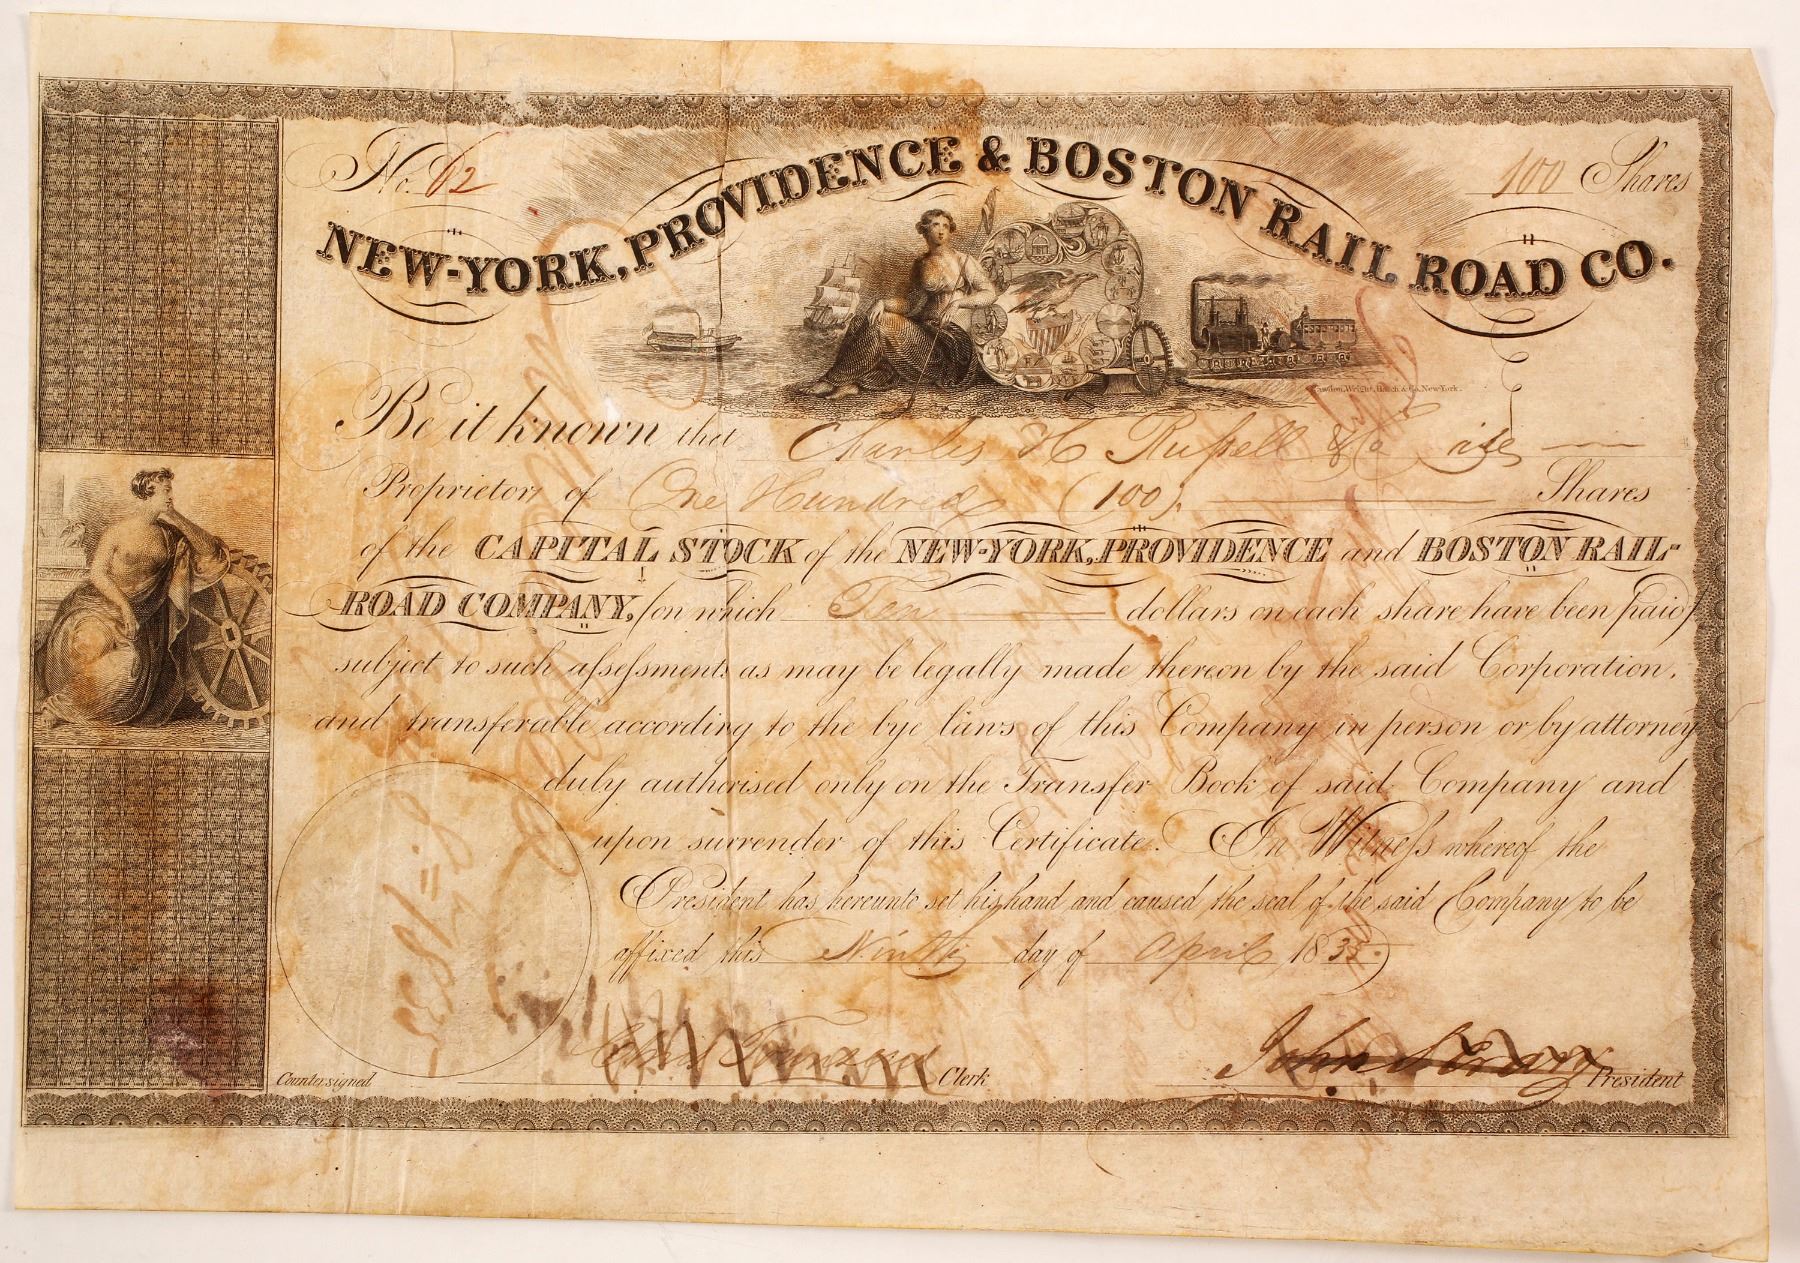 No. 62
100 Shares
NEW-YORK, PROVIDENCE & BOSTON RAIL ROAD CO.
Rawdon, Wright, Hatch & Co. New-York.
Be it known that Charles H Russell & Co
Proprietors of One Hundred (100) Shares
of the CAPITAL STOCK of the NEW-YORK, PROVIDENCE and BOSTON RAIL-
ROAD COMPANY, (on which Ten dollars on each share have been paid)
subject to such assessments as may be legally made thereon by the said Corporation,
and transferable according to the bye laws of this Company in person or by attorney
duly authorised only on the Transfer Book of said Company and
upon surrender of this Certificate. In Witness whereof the
President has hereunto set his hand and caused the seal of the said Company to be
affixed this Ninth day of April 1835.
Countersigned Clerk
John S. Crary President